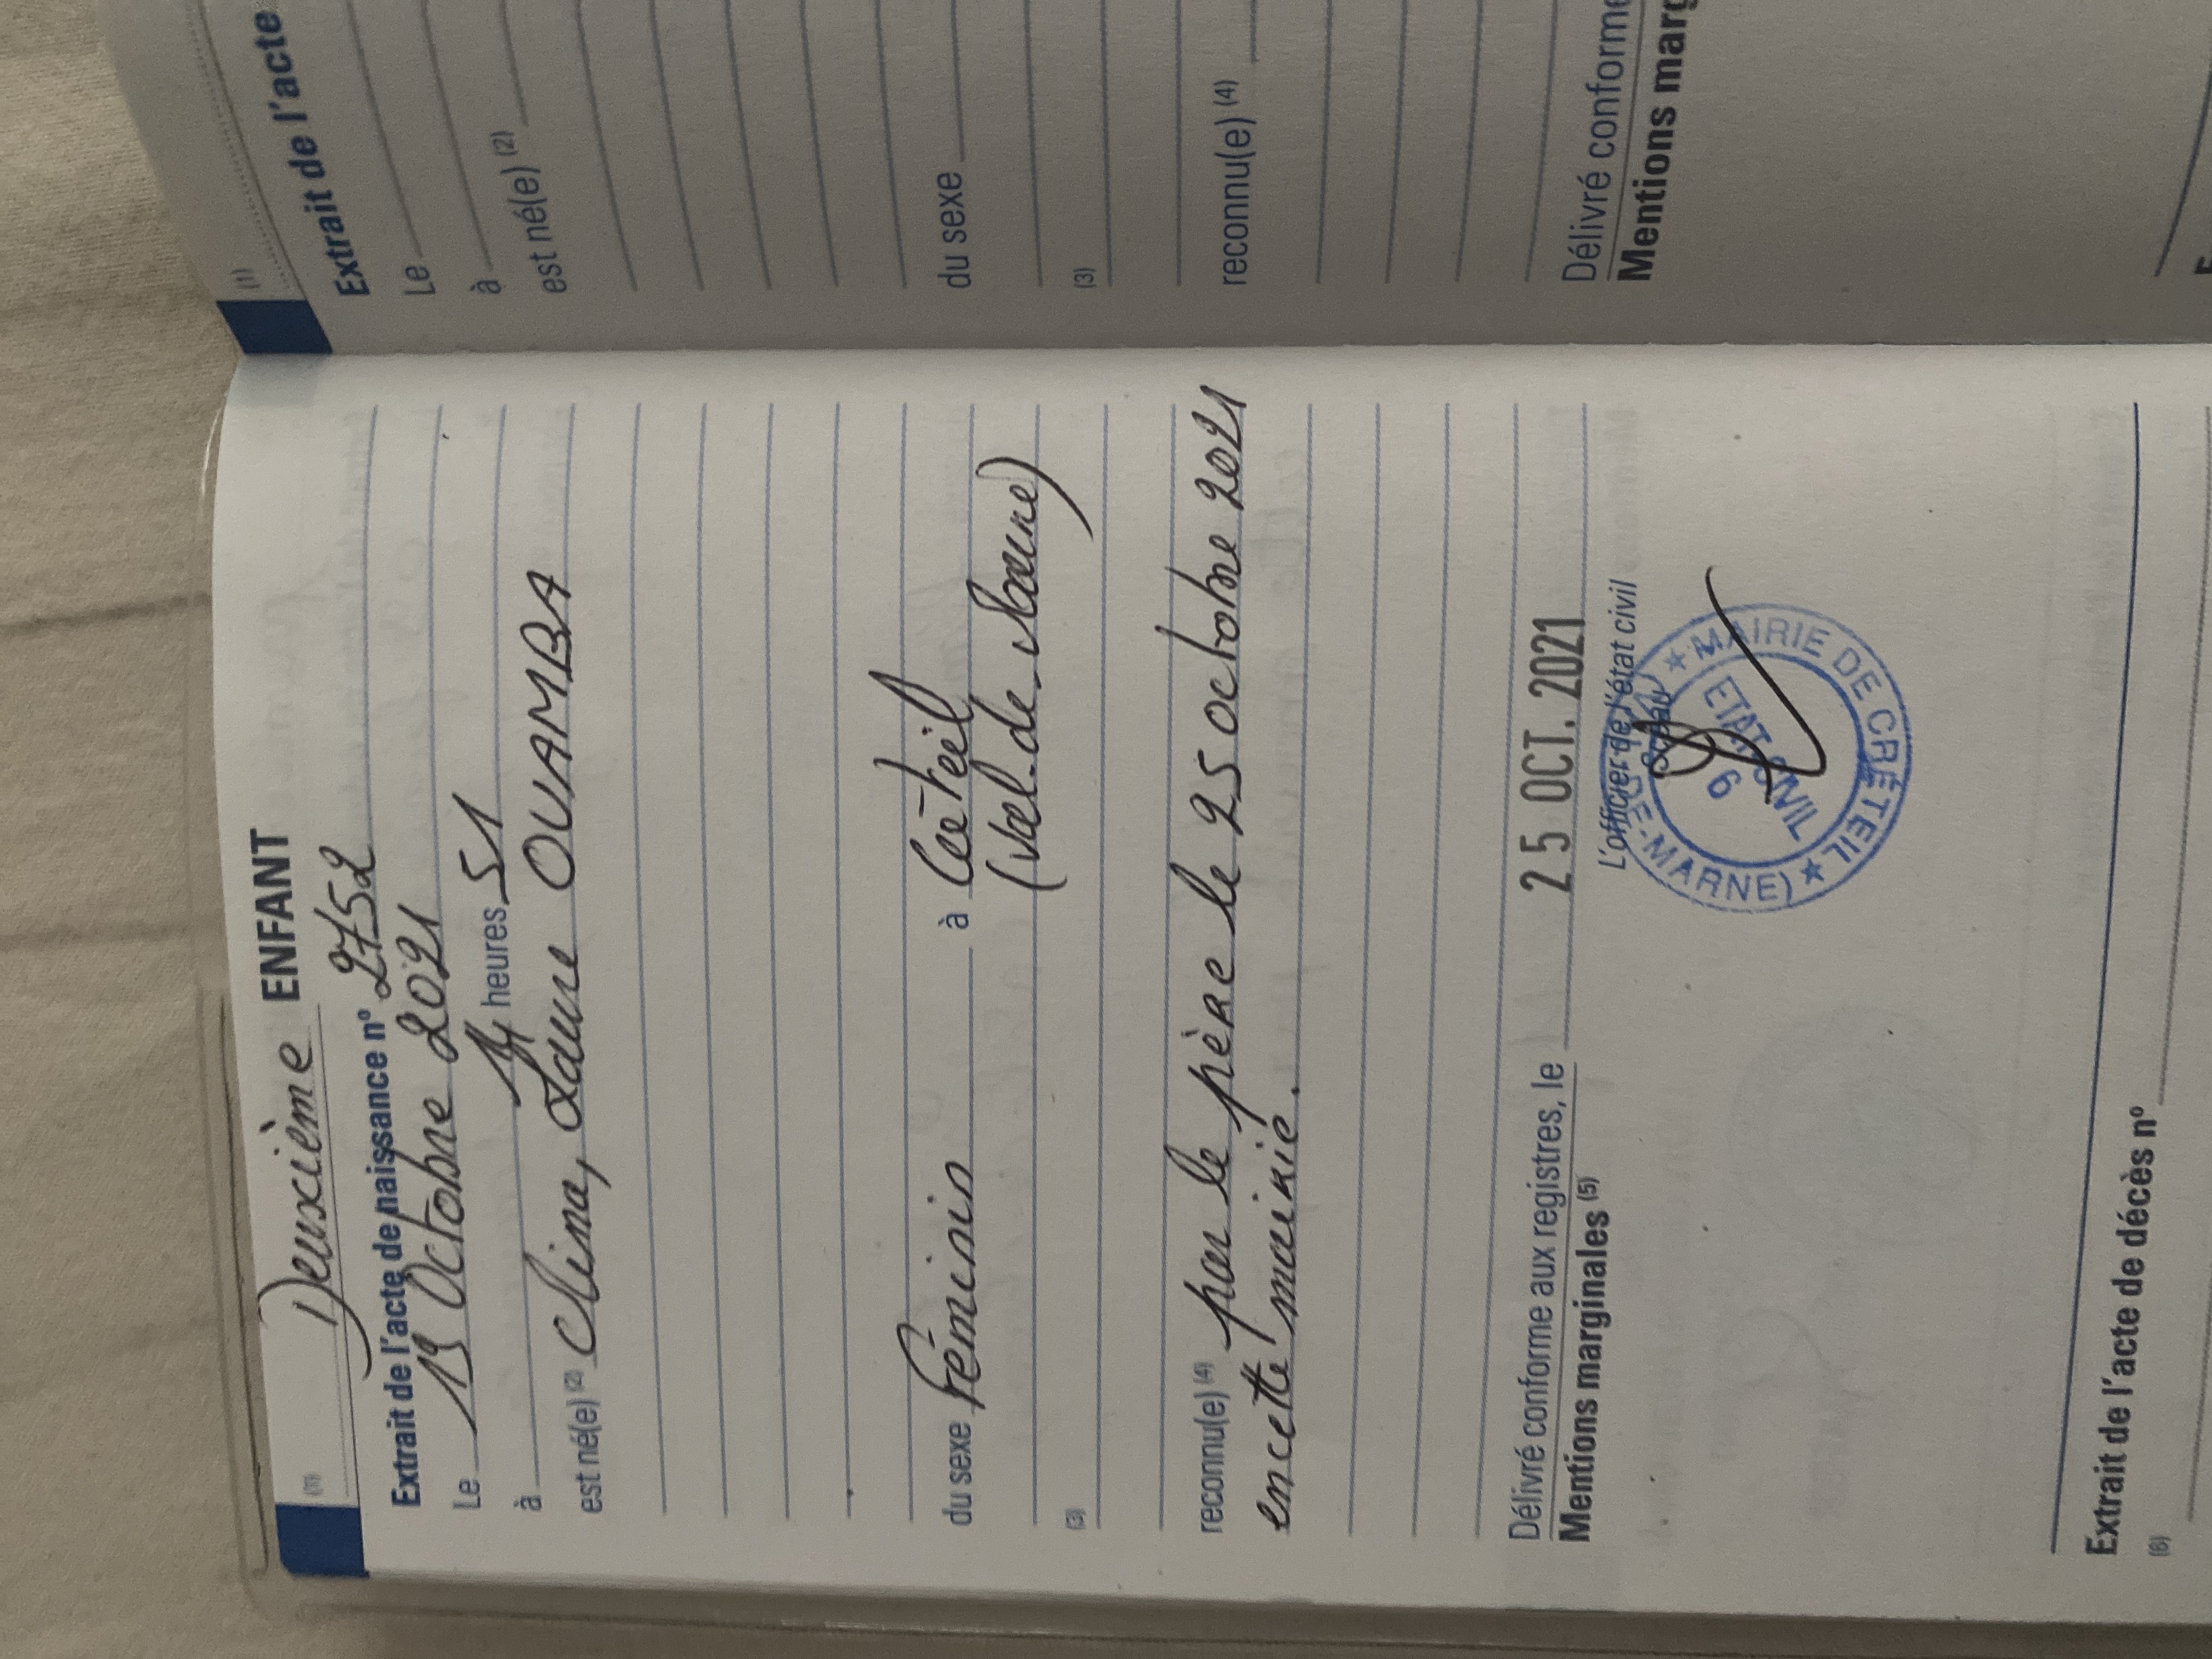 (1) Deuxième ENFANT
Extrait de l'acte de naissance nº 2752
Le 19 Octobre 2021
à 14 heures 51
est né(e) (2) Clina, Laure OUAMBA
du sexe féminin à Créteil
(Val-de-Marne)
(3)
reconnu(e) (4) par le père le 25 octobre 2021
en cette mairie.
Délivré conforme aux registres, le 25 OCT. 2021
Mentions marginales (5)
L'officier de l'état civil
Sceau
★ MAIRIE DE CRÉTEIL ★ (VAL-DE-MARNE)
ETAT CIVIL
6
Extrait de l'acte de décès nº
(6)
(1)
Extrait de l'acte
Le
à
est né(e) (2)
du sexe
(3)
reconnu(e) (4)
Délivré conforme
Mentions marg